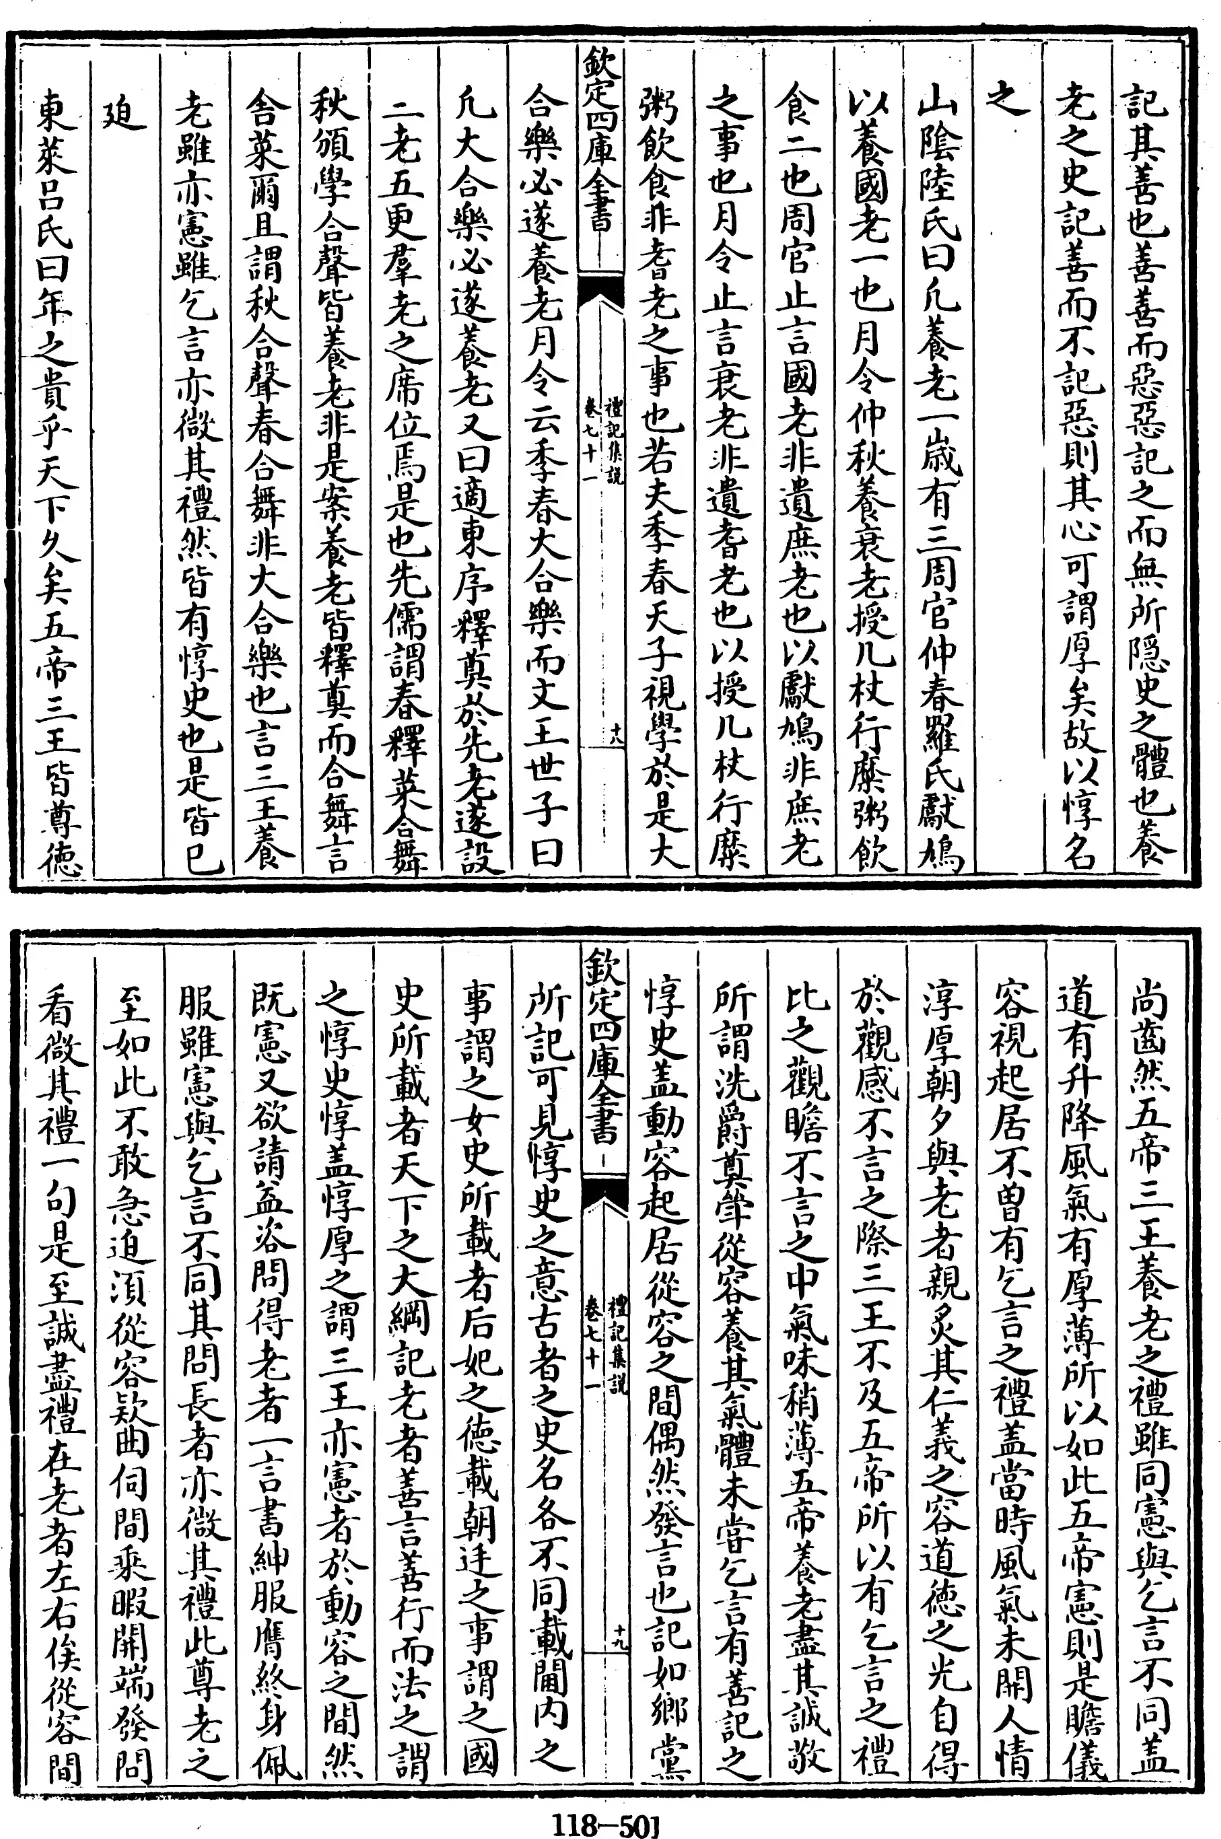 記其善也善善而惡惡記之而無所隱史之體也養
老之史記善而不記惡則其心可謂厚矣故以惇名
之
山陰陸氏曰凡養老一歲有三周官仲春羅氏獻鳩
以養國老一也月令仲秋養衰老授几杖行糜粥飲
食二也周官止言國老非遺庶老也以獻鳩非庶老
之事也月令止言衰老非遺耆老也以授几杖行糜
粥飲食非耆老之事也若夫季春天子視學於是大
欽定四庫全書
禮記集說
卷七十一
十八
合樂必遂養老月令云季春大合樂而文王世子曰
凡大合樂必遂養老又曰適東序釋奠於先老遂設
二老五更羣老之席位焉是也先儒謂春釋菜合舞
秋頒學合聲皆養老非是案養老皆釋奠而合舞言
舎菜爾且謂秋合聲春合舞非大合樂也言三王養
老雖亦憲雖乞言亦微其禮然皆有惇史也是皆已
廹
東萊吕氏曰年之貴乎天下久矣五帝三王皆尊德
尚齒然五帝三王養老之禮雖同憲與乞言不同盖
道有升降風氣有厚薄所以如此五帝憲則是瞻儀
容視起居不曽有乞言之禮盖當時風氣未開人情
淳厚朝夕與老者親炙其仁義之容道德之光自得
於觀感不言之際三王不及五帝所以有乞言之禮
比之觀瞻不言之中氣味稍薄五帝養老盡其誠敬
所謂洗爵奠斝從容養其氣體未嘗乞言有善記之
惇史盖動容起居從容之間偶然發言也記如鄉黨
欽定四庫全書
禮記集說
卷七十一
十九
所記可見惇史之意古者之史名各不同載閫内之
事謂之女史所載者后妃之德載朝廷之事謂之國
史所載者天下之大綱記老者善言善行而法之謂
之惇史惇盖惇厚之謂三王亦憲者於動容之間然
既憲又欲請益咨問得老者一言書紳服膺終身佩
服雖憲與乞言不同其問長者亦微其禮此尊老之
至如此不敢急迫湏從容欵曲伺間乘暇開端發問
看微其禮一句是至誠盡禮在老者左右俟從容間
118-501